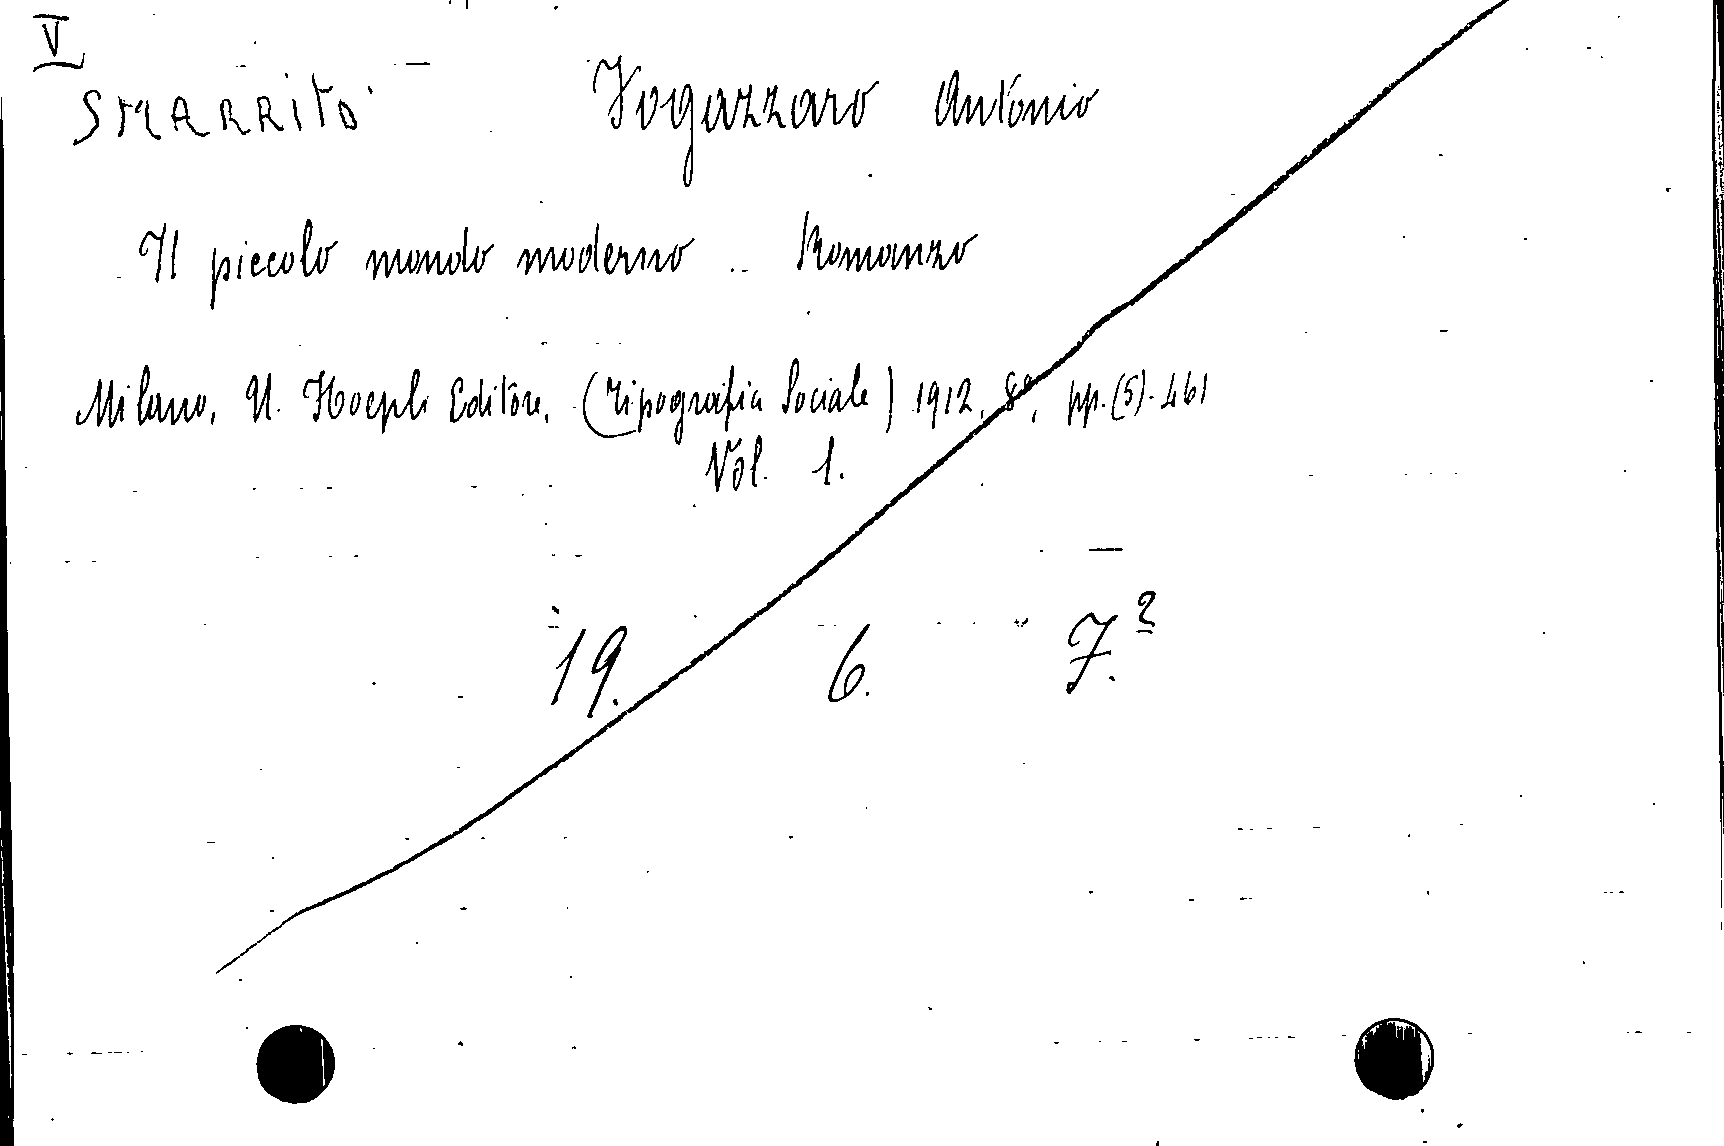 V
SMARRITO Fogazzaro Antonio
Il piccolo mondo moderno .. Romanzo
Milano, U. Hoepli Editore, (Tipografia Sociale) 1912, 8º, pp. (5)-461
Vol. 1.
19. 6. 7.2